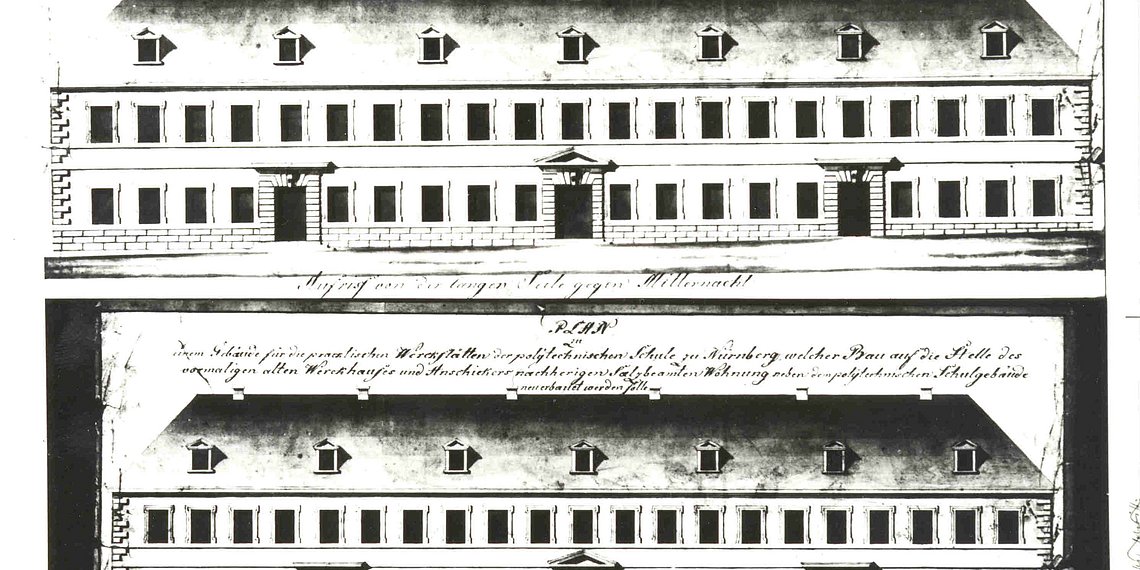 Aufriss von der langen Seite gegen Mitternacht
PLAN
zu
einem Gebäude für die practischen Werckstätten der polytechnischen Schule zu Nürnberg, welcher Bau auf die Stelle des
vormaligen alten Werckhauses und Anschickers nachherigen Salzbeamten Wohnung neben dem polytechnischen Schulgebäude
neuerbauet werden solle